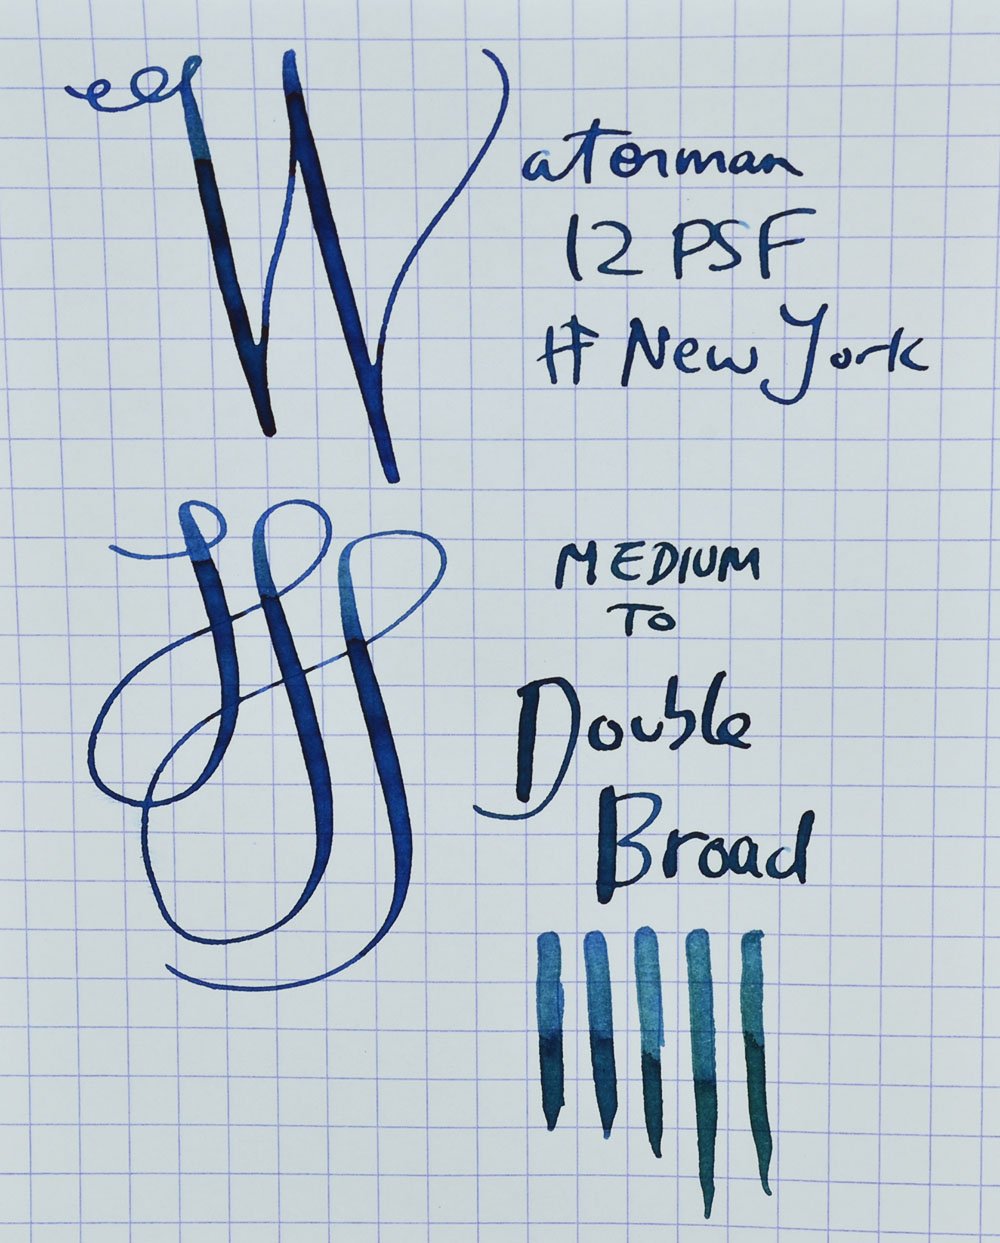 Waterman
12 PSF
# New York
MEDIUM
TO
Double
Broad